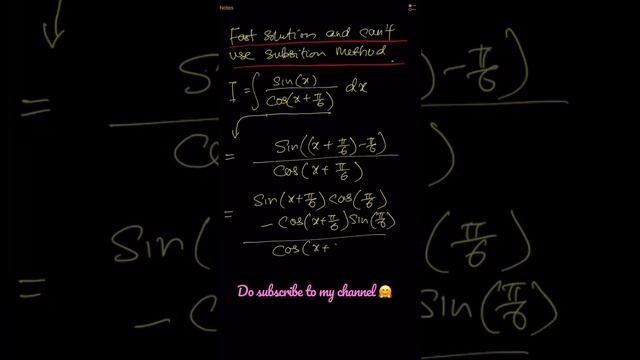 Notes
Fast solution and can't
use subsition method.
I = ∫ sin(x) / cos(x + π/6) dx
= sin((x + π/6) - π/6) / cos(x + π/6)
= sin(x + π/6) cos(π/6)
- cos(x + π/6) sin(π/6)
cos(x +
Do subscribe to my channel 🤗